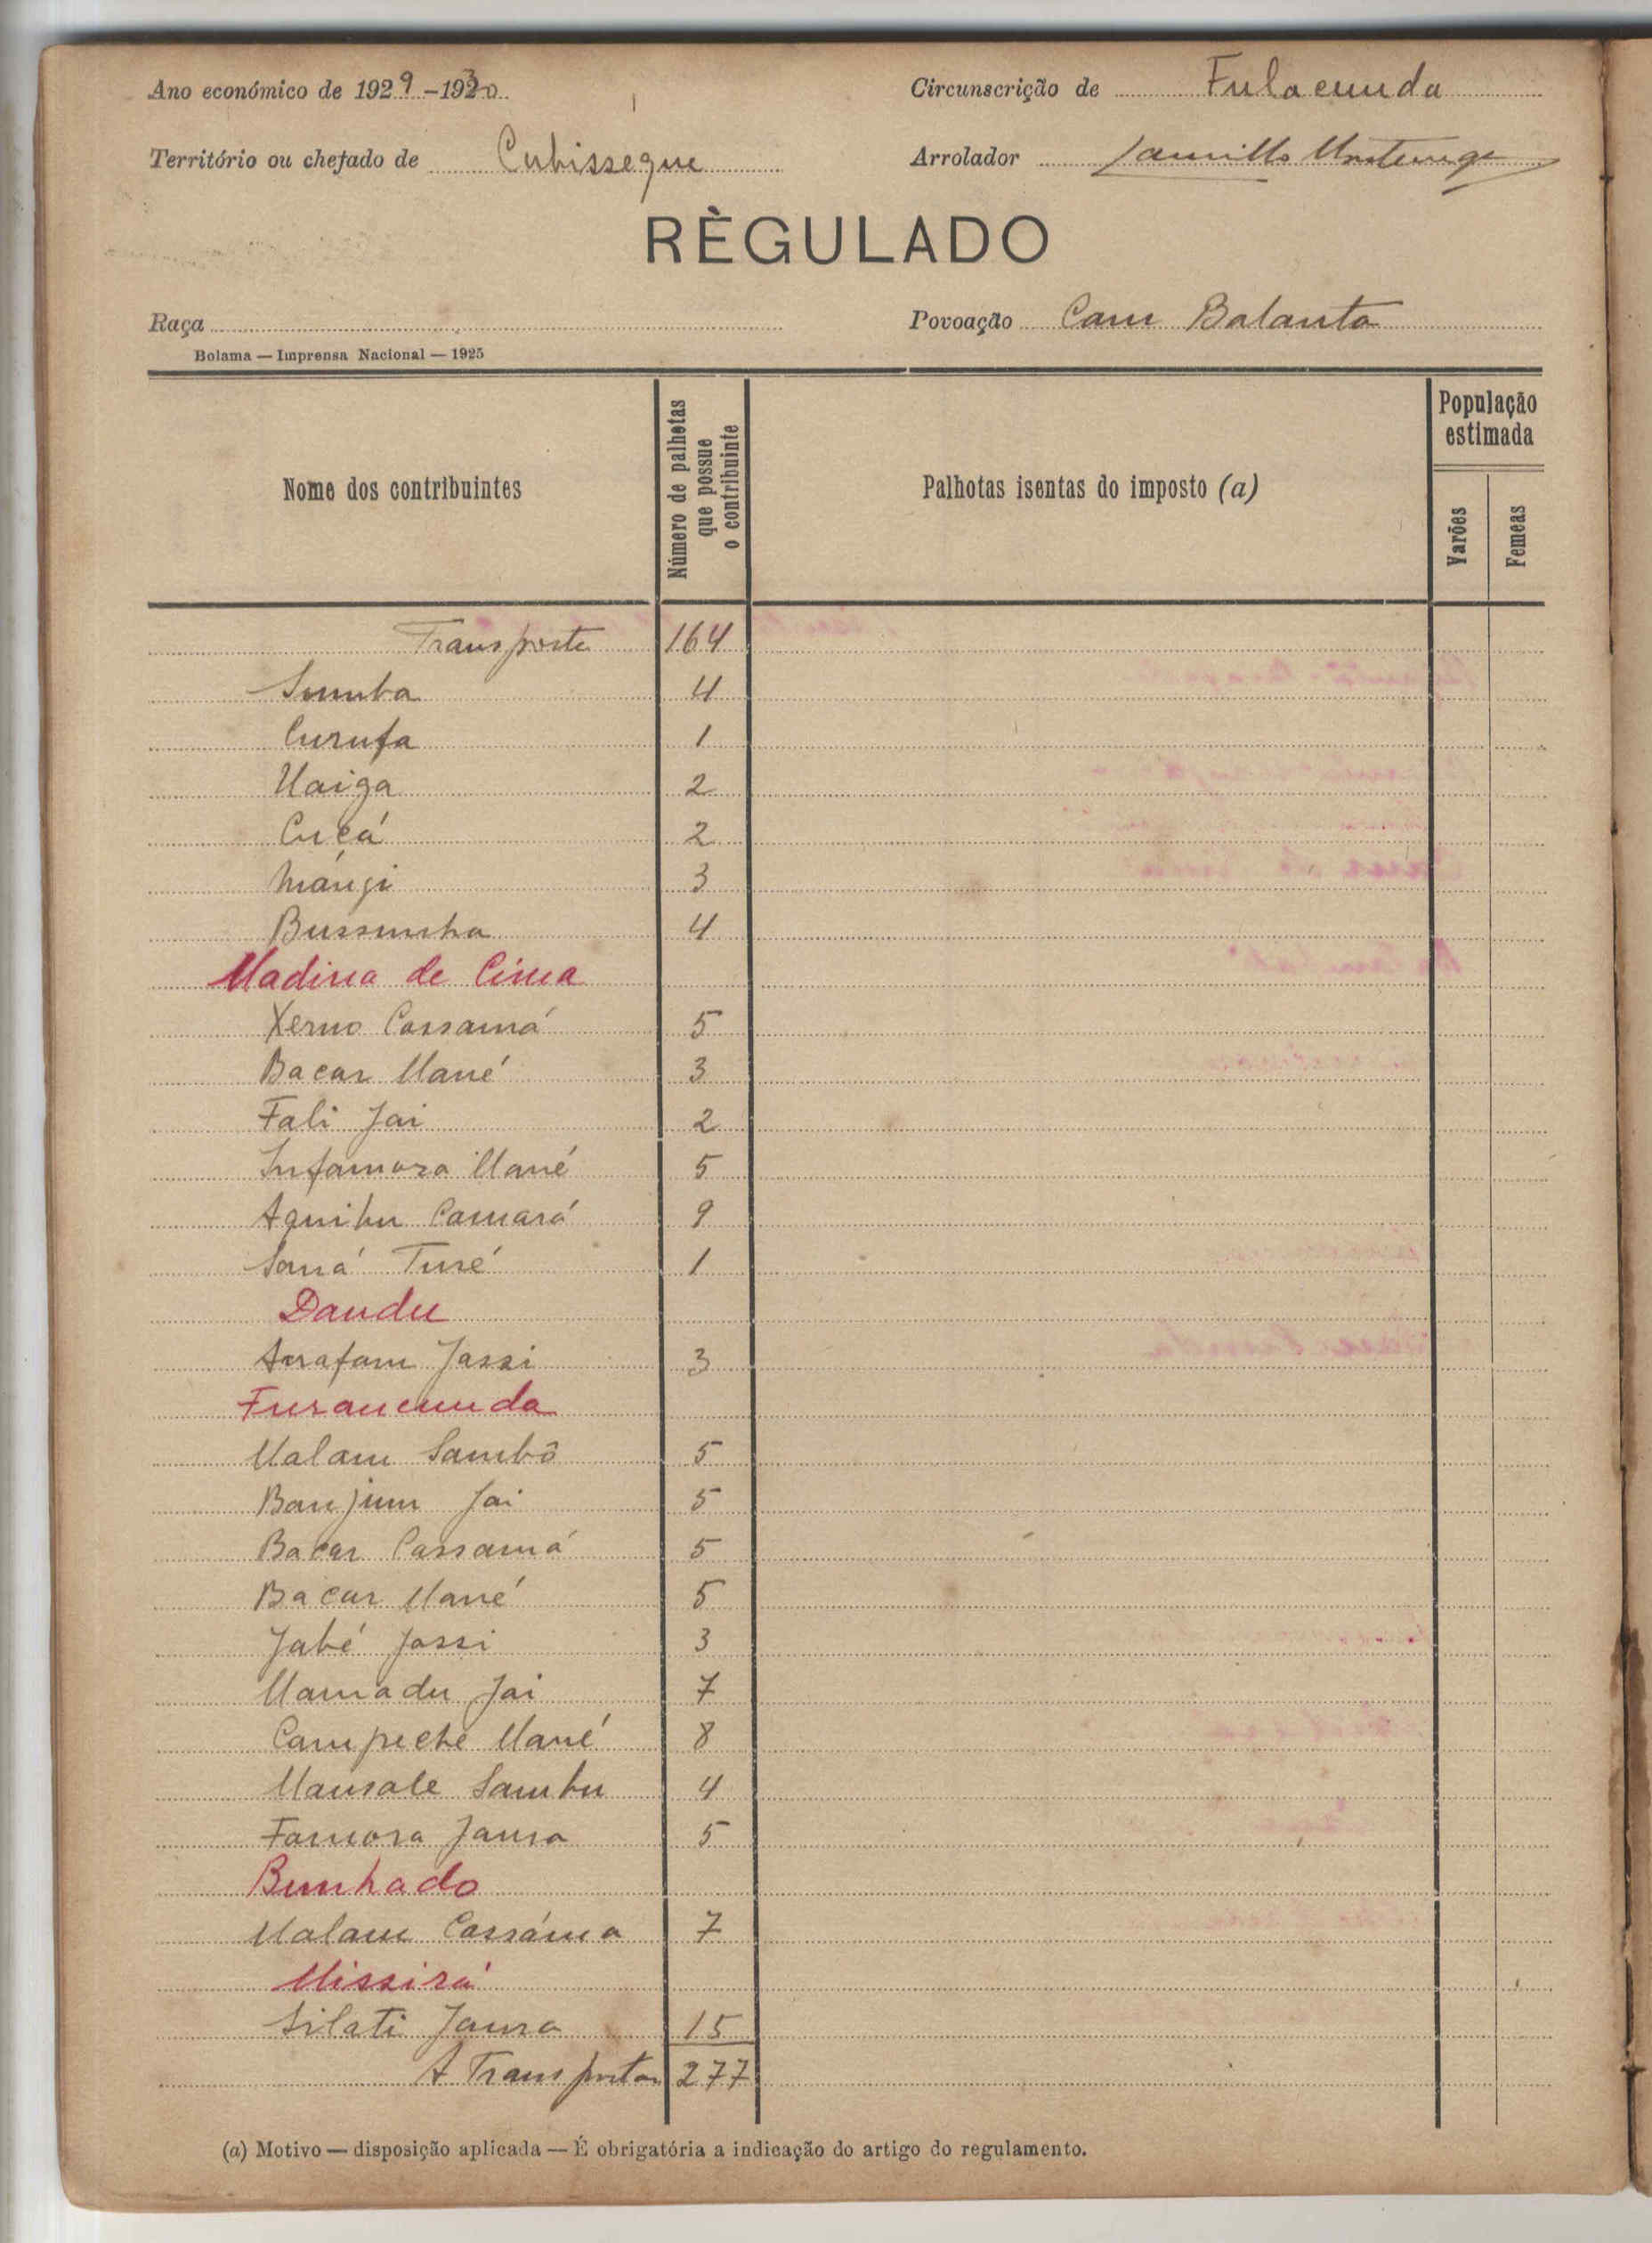 Ano económico de 1929-1930
Circunscrição de Fulacunda
Território ou chefado de Cubisseque
Arrolador
RÈGULADO
Raça
Povoação Cam Balanta
Bolama — Imprensa Nacional — 1925
Nome dos contribuintes
Número de palhotas que possue o contribuinte
Palhotas isentas do imposto (a)
População estimada
Varões
Femeas
Transporte 164
Sumba 4
Curufa 1
Uaiga 2
Cuçá 2
3
4
Madina de Cima
Xerno Cassamá 5
Bacar Mané 3
Fali Jai 2
Infamara Mané 5
Aquibu Camará 9
Saná Turé 1
Dandu
Arafam Jassi 3
Furancunda
Malam Sambô 5
Banjum Jai 5
Bacar Cassamá 5
Bacar Mané 5
Jabé Jassi 3
Mamadu Jai 7
Campeche Mané 8
Mansale Sambu 4
Famora Jaura 5
Bunhado
Malam Cassáma 7
Missirá
Silati Jaura 15
A Transportar 277
(a) Motivo — disposição aplicada — É obrigatória a indicação do artigo do regulamento.